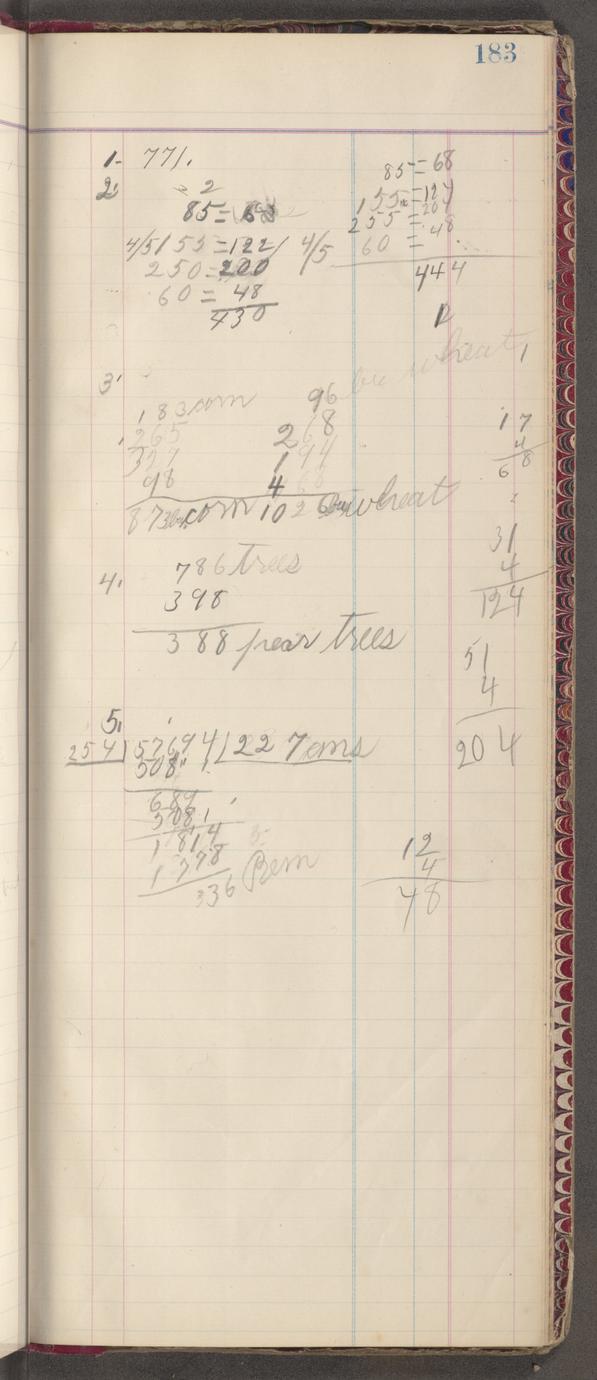 183
1. 771.
2.
2
85 = 68
4/5 155 = 122 / 4/5
250 = 200
60 = 48
430
85 = 68
155 = 124
255 = 204
60 = 48
444
12
3.
bu wheat
183 corn 96
265 268
327 194
98 4 68
873 bu corn 1026 bu wheat
4. 786 trees
398
388 pear trees
17
4
68
31
4
124
51
4
204
5.
254 | 57694 | 227 ems
508
689
5081
1814
1778
336 Rem
12
4
48